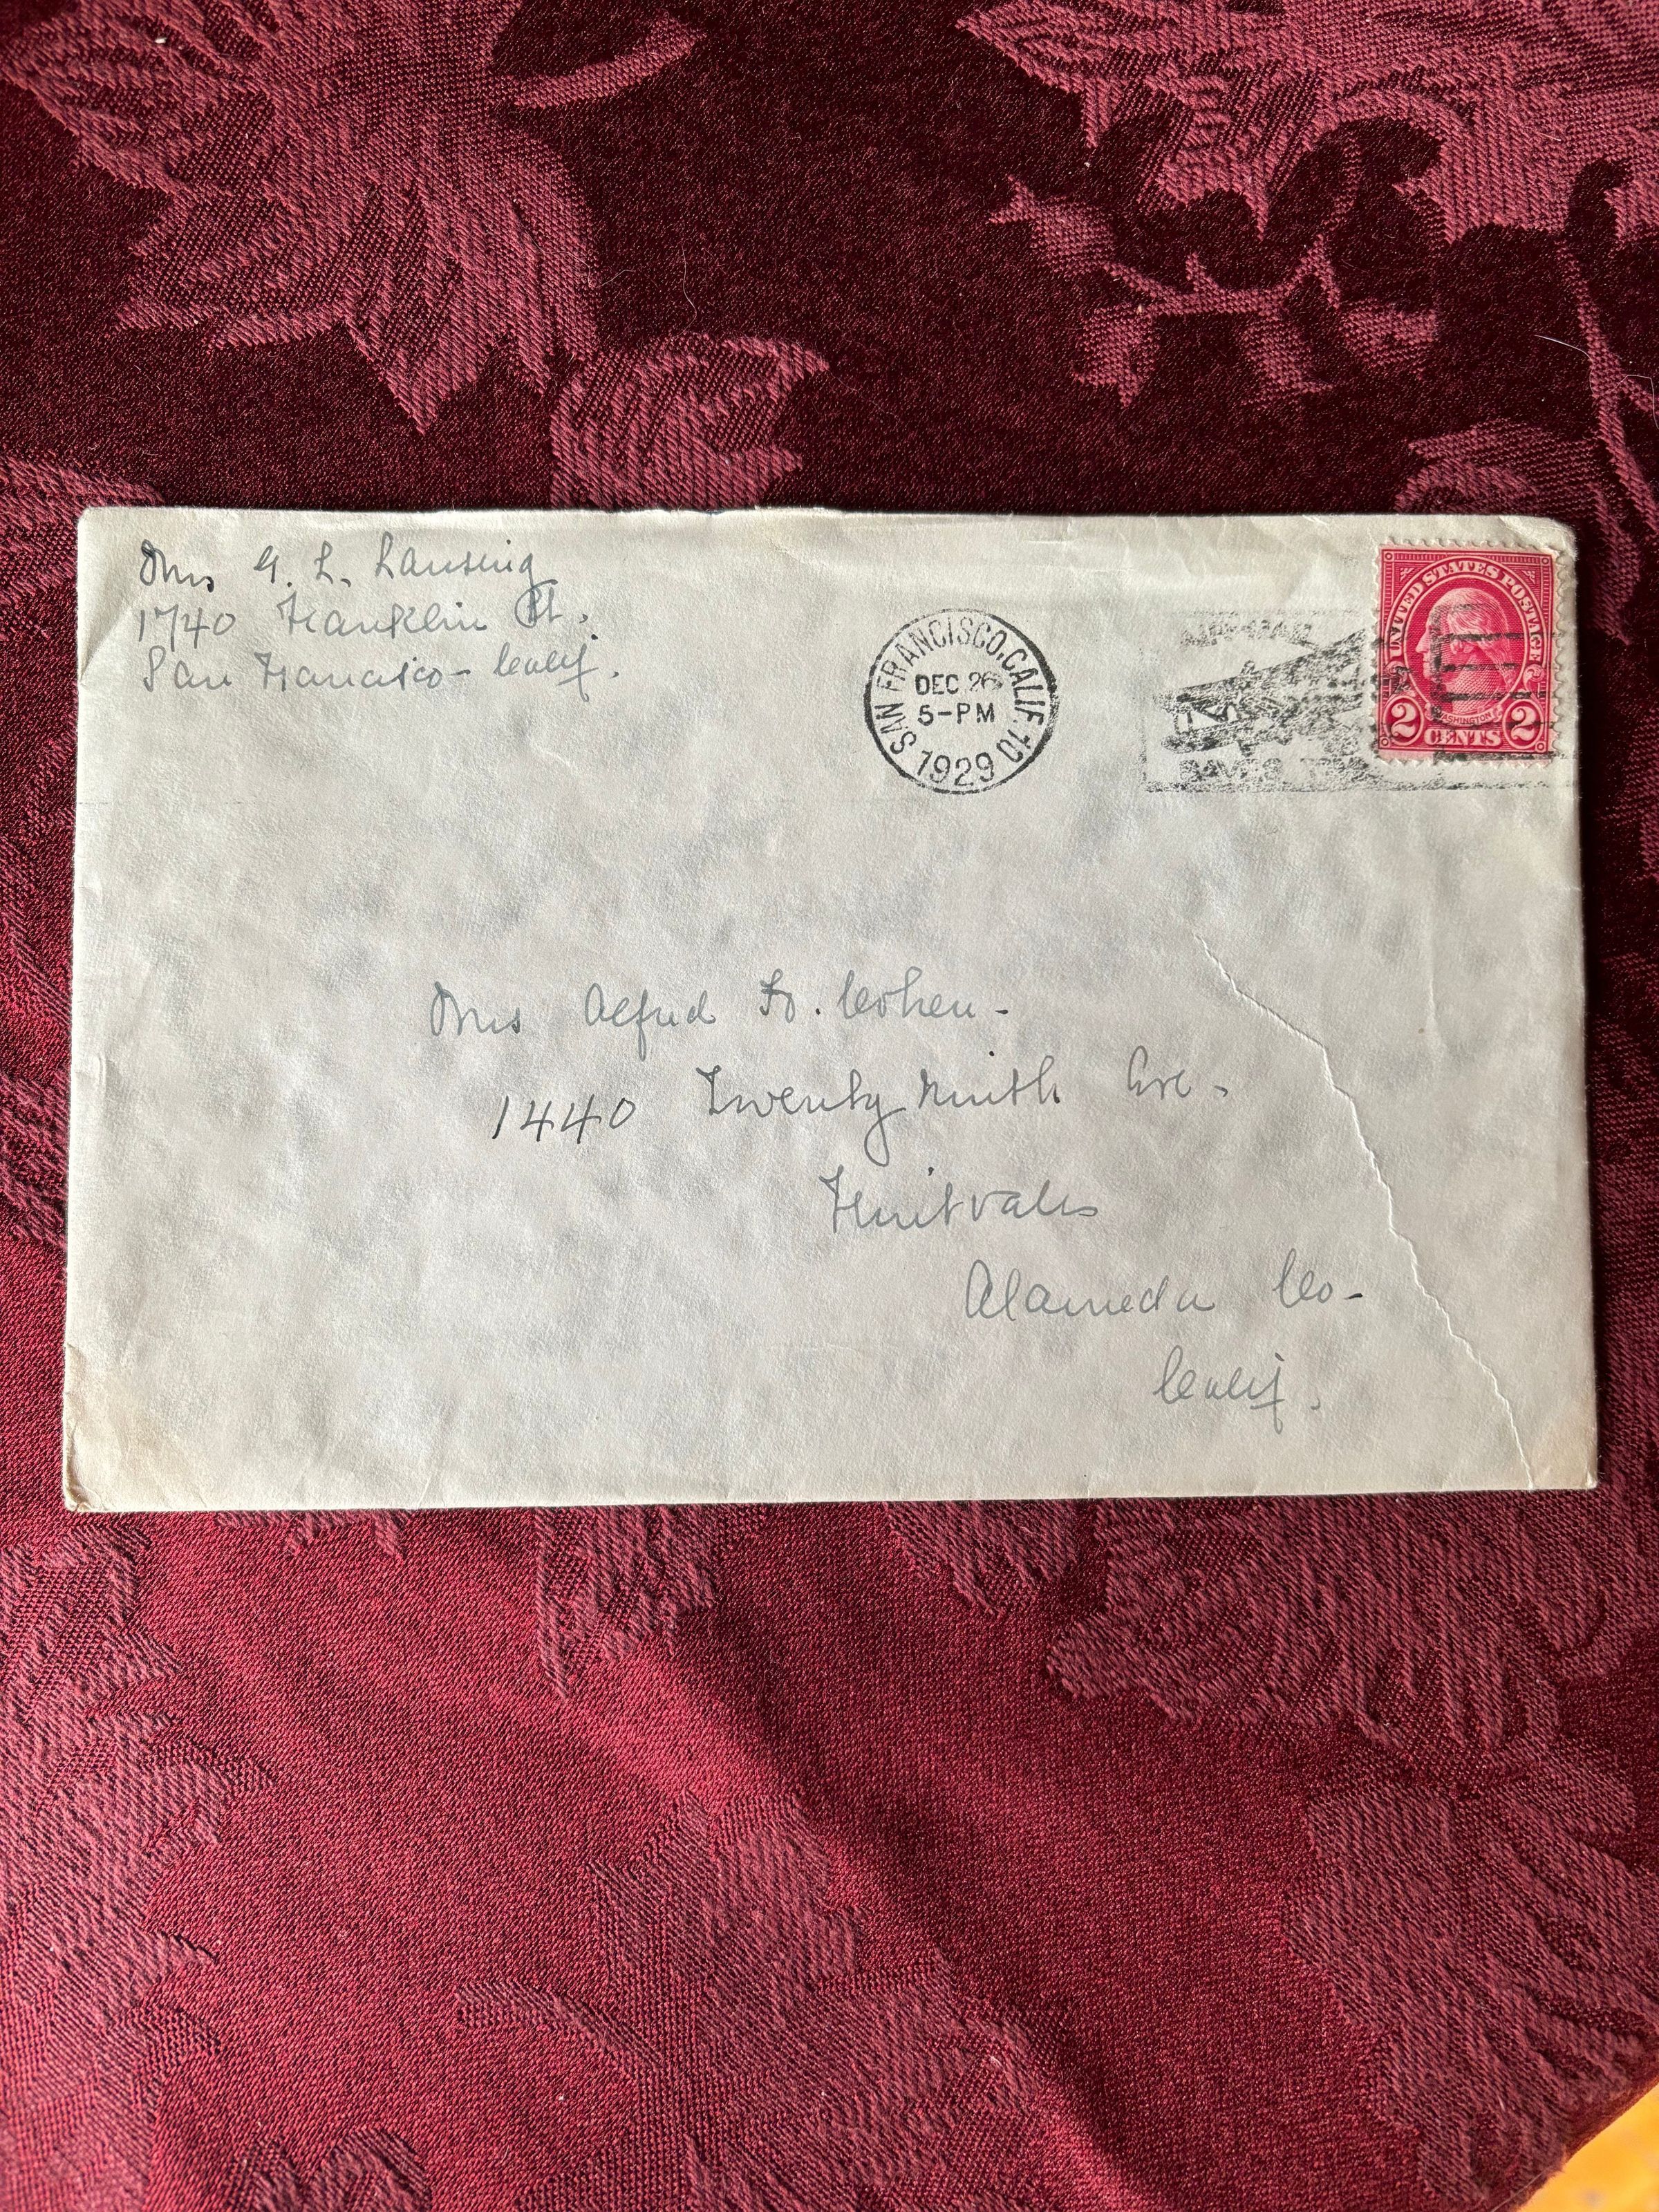 Mrs G. L. Lansing
1740 Franklin St.
San Francisco - Calif.
SAN FRANCISCO, CALIF. 10
DEC 26
5-PM
1929
AIR MAIL
SAVES TIME
UNITED STATES POSTAGE
WASHINGTON
2 CENTS 2
Mrs Alfred H. Cohen -
1440 Twenty Ninth Ave -
Fruitvale
Alameda Co -
Calif.